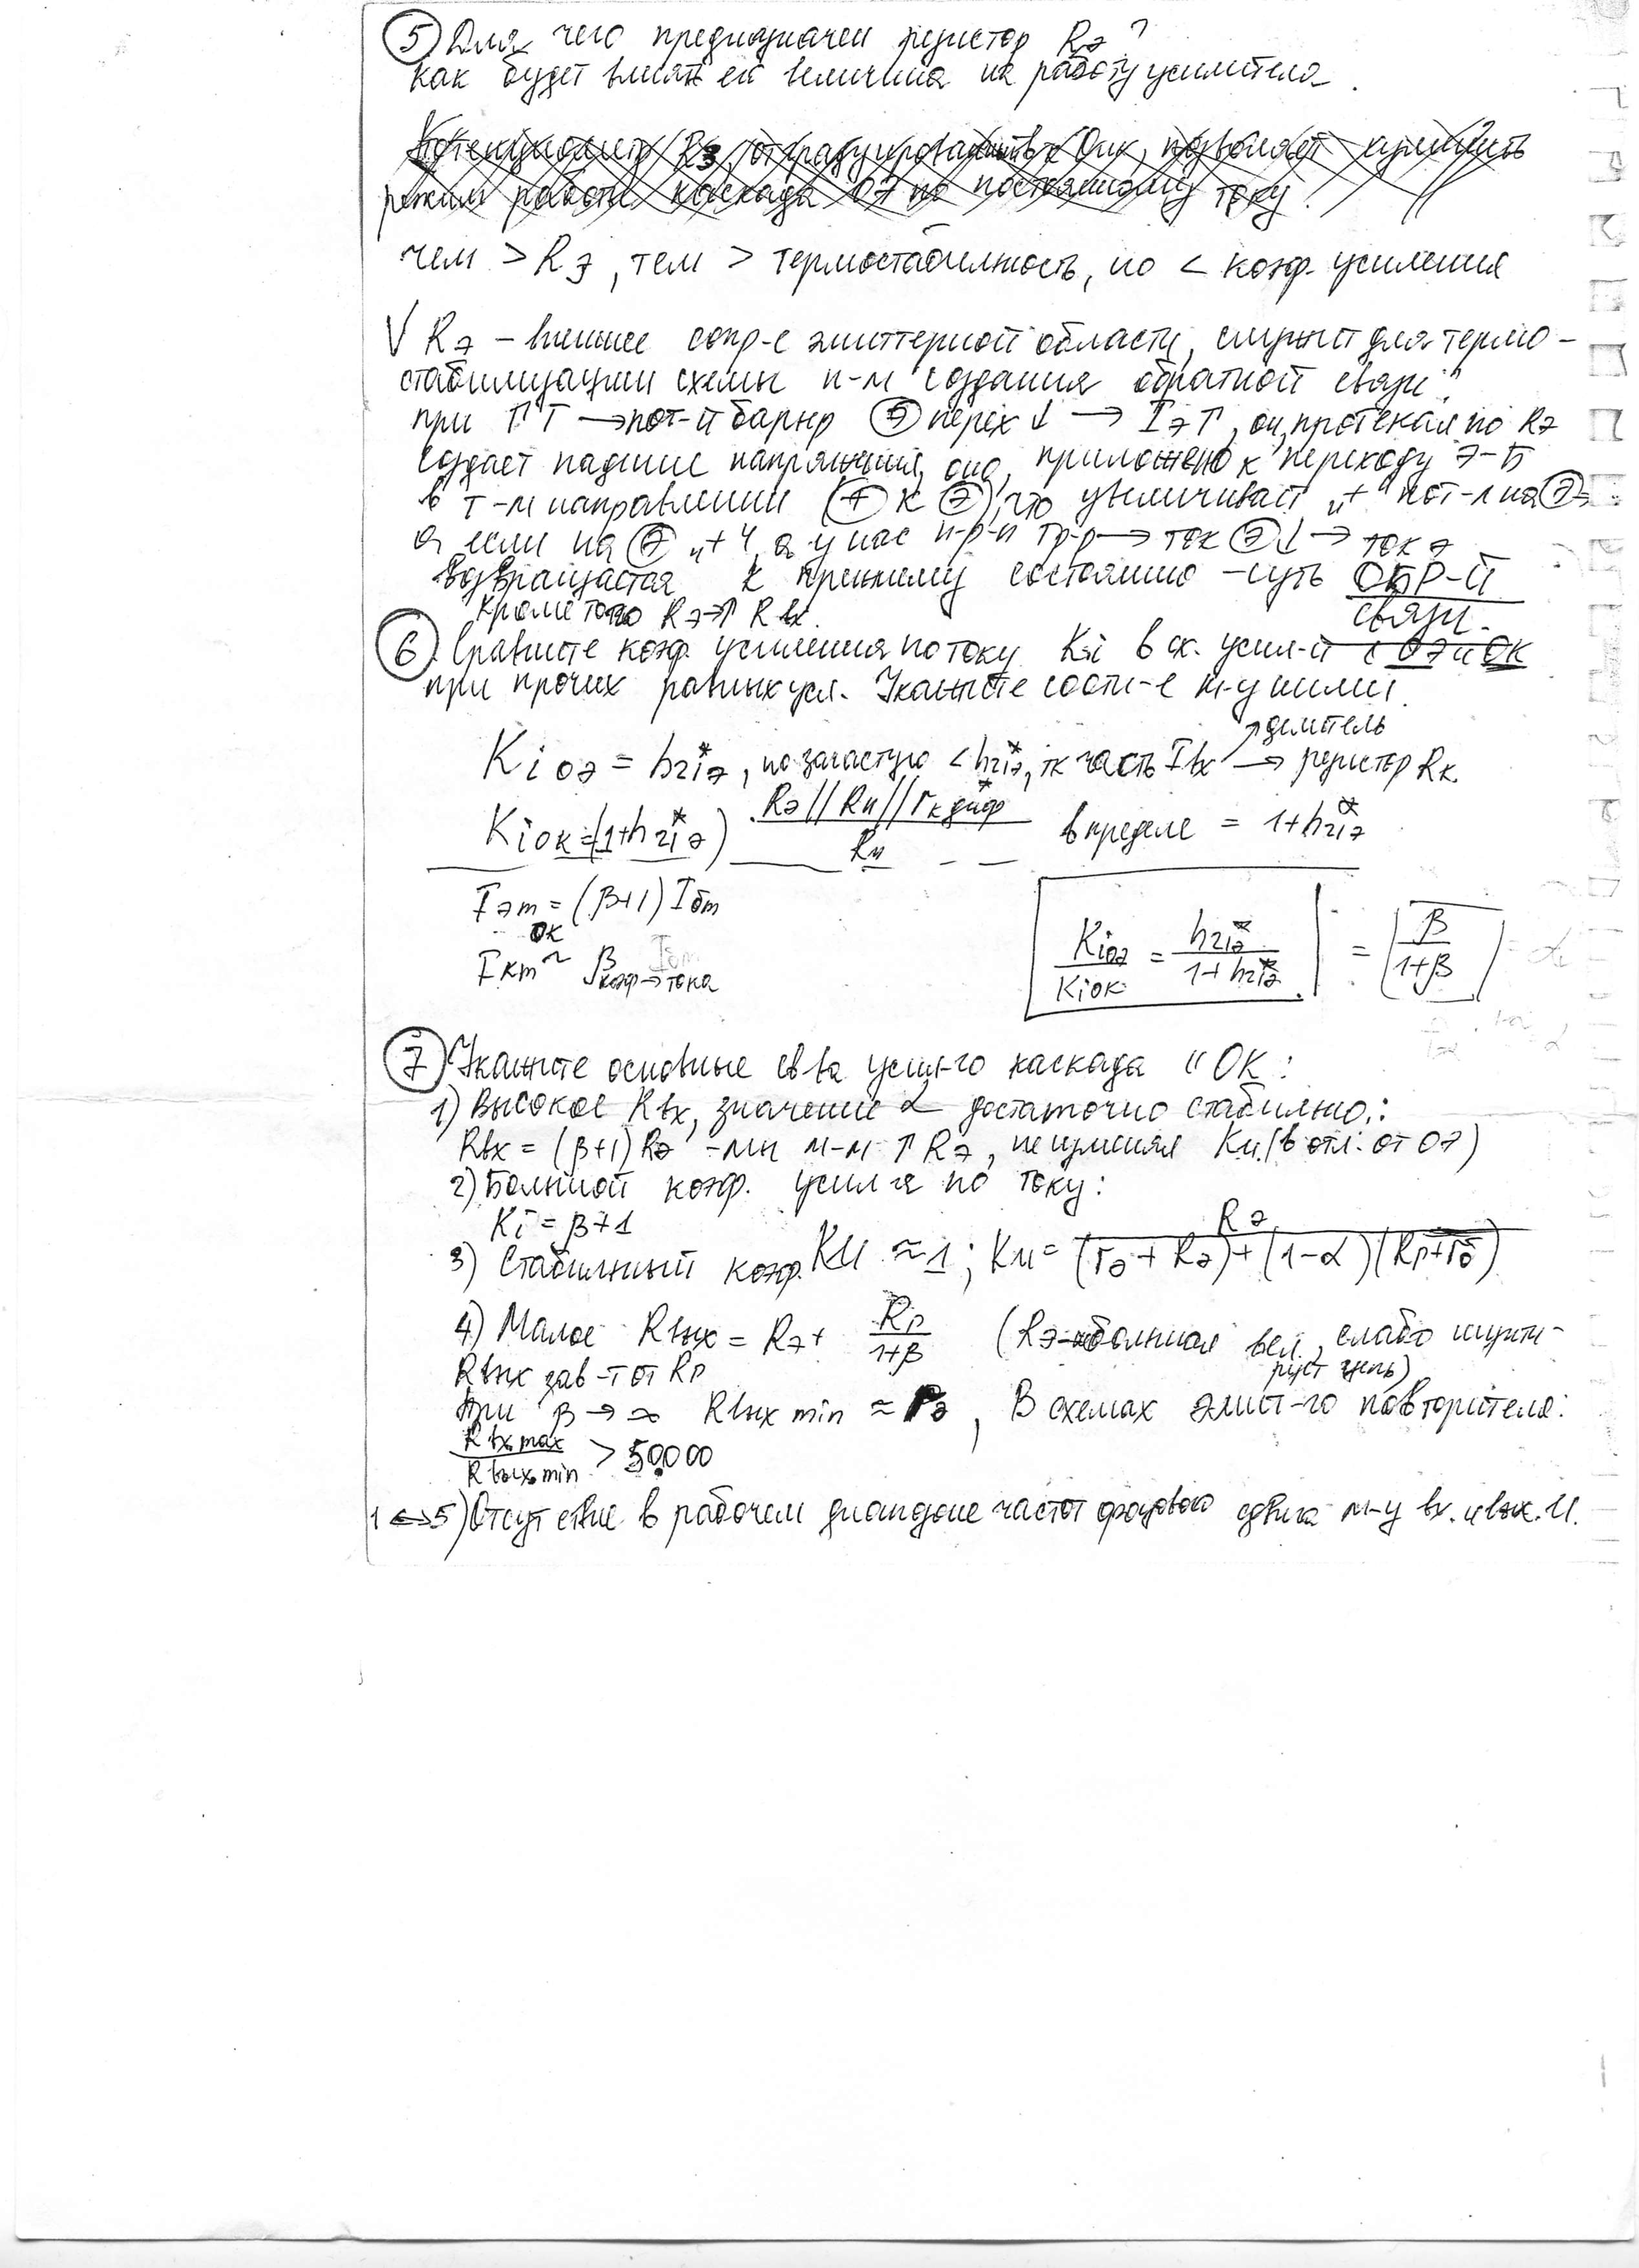 ⑤ Для чего предназначен резистор Rэ?
как будет влиять его величина на работу усилителя.
Потенциометр R3, отградуированный в Ом, позволяет изменить
режим работы каскада ОЭ по постоянному току.
чем > Rэ, тем > термостабильность, но < коэф. усиления
√ Rэ – внешнее сопр-е эмиттерной области, служит для термо-
стабилизации схемы п-м создания обратной связи:
при ↑T → пот-й барьер Э перех ↓ → Iэ↑, он, протекая по Rэ
создает падение напряжения, оно приложено к переходу Э-Б
в т-м направлении (+ к Э), что увеличивает "+" пот-л на Э
а если на Э "+", а у нас n-p-n тр-р → ток Э↓ → ток э
возвращается к прежнему состоянию – суть ОБР-Й
связи.
кроме того Rэ→↑ Rвх.
⑥ Сравните коэф. усиления по току Ki в сх. усил-й с ОЭ и ОК
при прочих равных усл. Укажите соотн-е м-у ними.
Ki оэ = h21э*, но зачастую < h21э*, тк часть Iвх → делитель
→ резистор Rк.
Ki ок = (1+h21э*) · Rэ//Rн//rк диф* / Rн в пределе = 1+h21э*
Iэm = (β+1) Iбm
ОК
Iкm ~ β Iбm
коэф → тока
Kiоэ / Kiок = h21э* / 1+h21э* = β / 1+β = α
⑦ Укажите основные св-ва усил-го каскада с ОК:
1) Высокое Rвх, значение α достаточно стабильно:
Rвх = (β+1) Rэ – мы м-м ↑ Rэ, не изменяя Ku (в отл. от ОЭ)
2) Большой коэф. усил-я по току:
Ki = β+1
3) Стабильный коэф. Ku ≈ 1; Ku = Rэ / (rэ + Rэ) + (1-α)(Rг+rб)
4) Малое Rвых = Rэ + Rг / 1+β (Rэ – большая вел., слабо шунти-
рует цепь)
Rвых зав-т от Rг
при β → ∞ Rвых min ≈ rэ, В схемах эмит-го повторителя:
Rвх max / Rвых min > 50000
1 ↔ 5) Отсутствие в рабочем диапазоне частот фазового сдвига м-у вх. и вых. U.